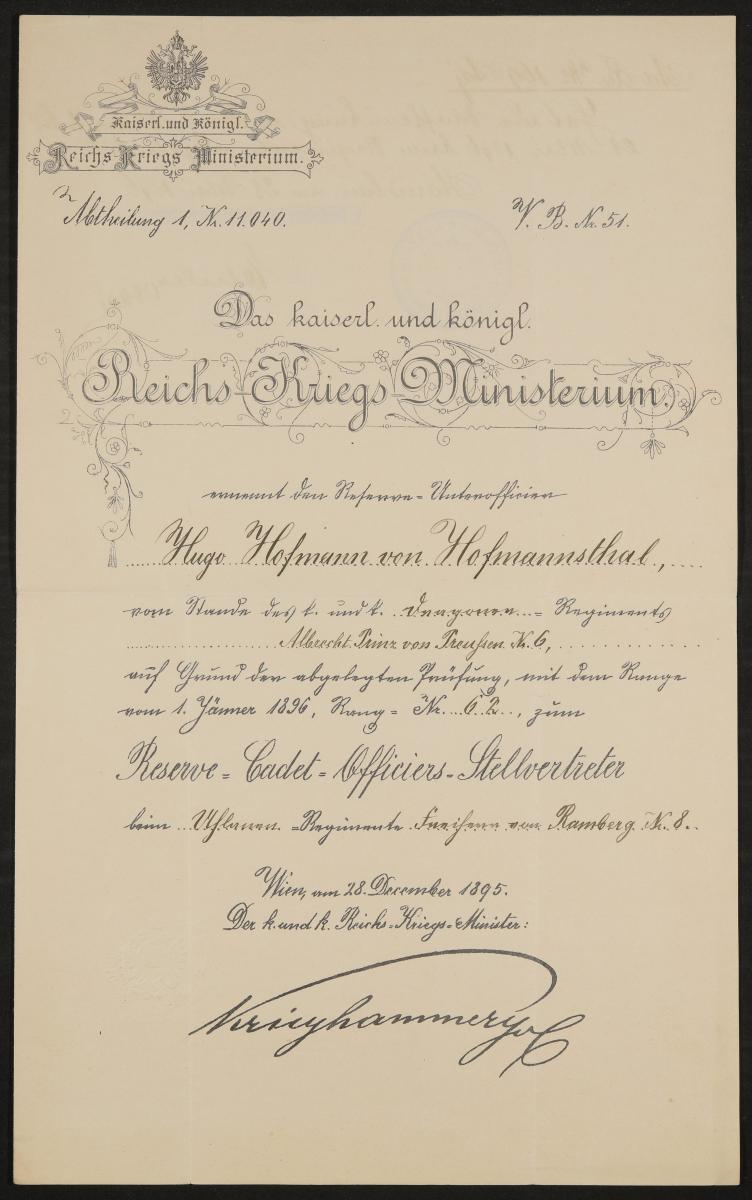 Kaiserl. und Königl.
Reichs-Kriegs Ministerium.
Abtheilung 1, Nr. 11.040.
V. B. Nr. 51.
Das kaiserl. und königl.
Reichs-Kriegs-Ministerium.
ernennt den Reserve-Unterofficier
Hugo Hofmann von Hofmannsthal,
vom Stande des k. und k. Dragoner-Regiments
Albrecht Prinz von Preussen Nr. 6,
auf Grund der abgelegten Prüfung, mit dem Range
vom 1. Jänner 1896, Rang-Nr. 62, zum
Reserve-Cadet-Officiers-Stellvertreter
beim Uhlanen-Regimente Freiherr von Ramberg Nr. 8.
Wien, am 28. December 1895.
Der k. und k. Reichs-Kriegs-Minister:
Krieghammer